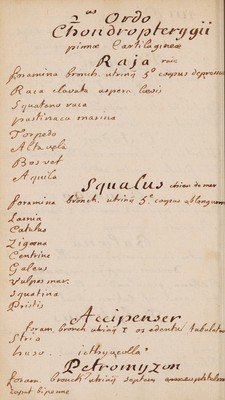 2us Ordo
Chondropterygii
pinnæ Cartilagineæ
Raja raie
foramina bronch. utrinq 5º corpus depressu
Raca clavata aspera lævis
Squatano raca
pastinaca marina
Torpedo
Altavela
Bosvet
Aquila
Squalus chien de mer
foramina bronch. utrinq 5º corpus oblongum
Lamia
Catulus
Zigæna
Centrine
Galeus
Vulpes mar.
Squatina
Pristis
Accipenser
foram. bronch utrinq 1 os edentu tubulatu
Stria
huso. icthyocolla
Petromyzon
foram. bronch utrinq septem
corpt bipenne